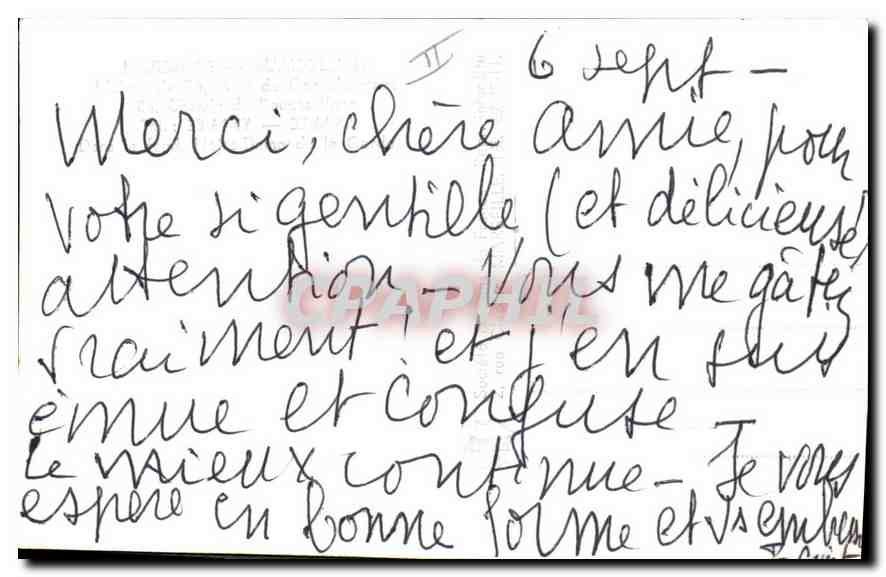 II
6 sept –
Merci, chère Amie, pour
votre si gentille (et délicieuse)
attention – Vous me gâtez
vraiment! et j'en suis
émue et confuse –
Le mieux continue – Je vous
espère en bonne forme et vs
CPAPHIL